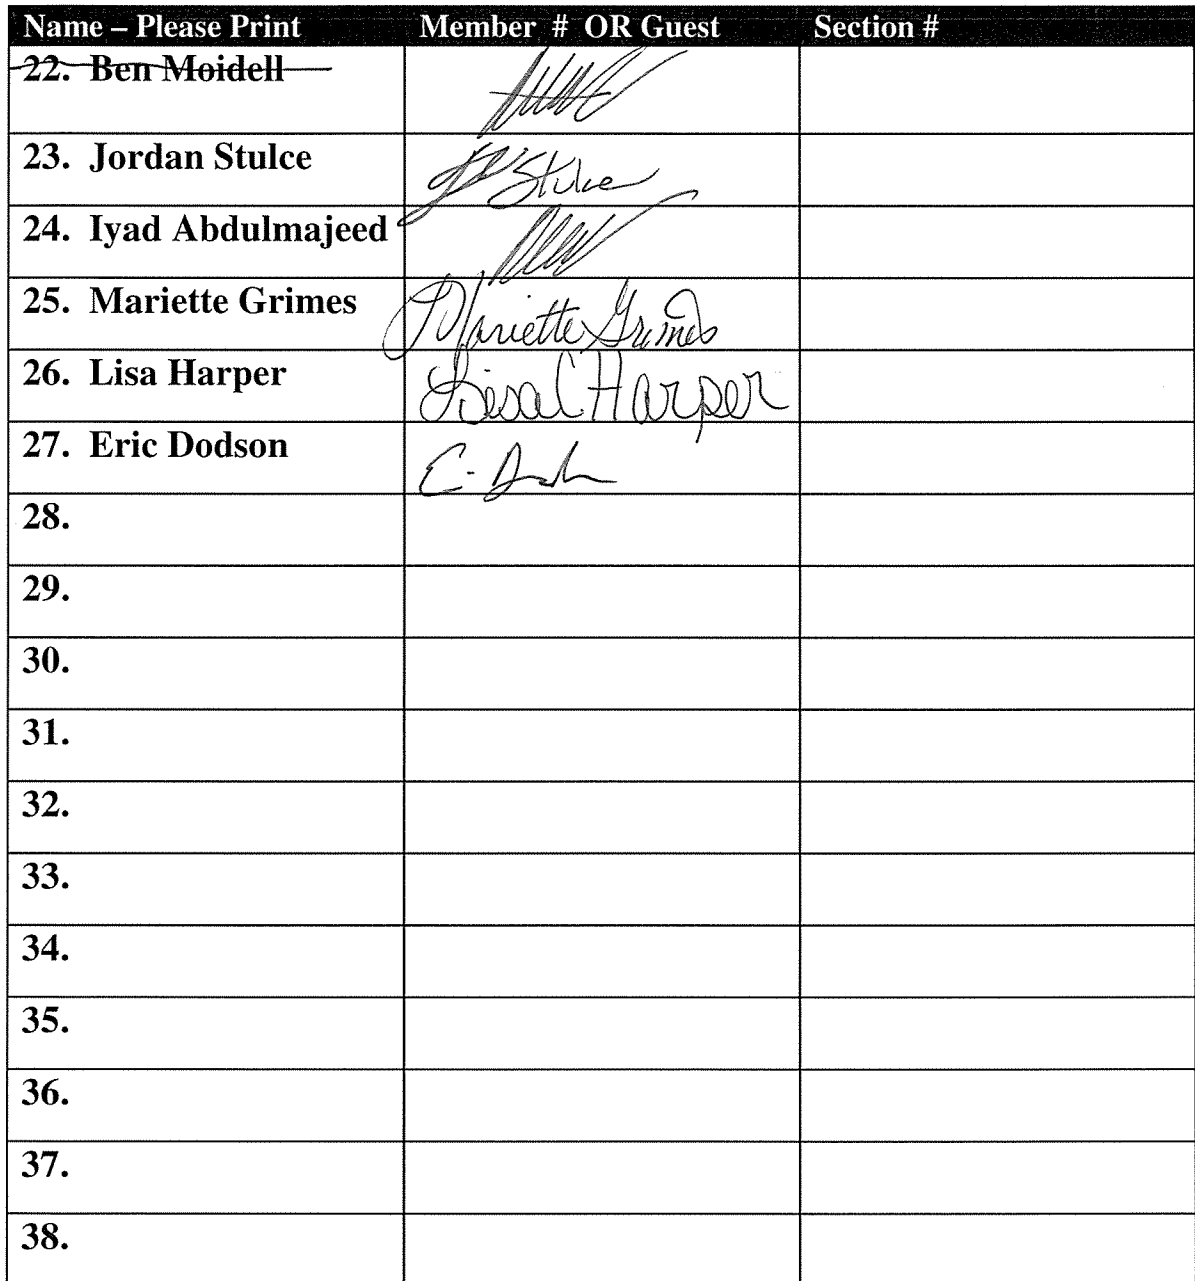 Name – Please Print Member # OR Guest Section #
22. Ben Moidell
23. Jordan Stulce Stulce
24. Iyad Abdulmajeed
25. Mariette Grimes Mariette Grimes
26. Lisa Harper Lisa C Harper
27. Eric Dodson E.
28.
29.
30.
31.
32.
33.
34.
35.
36.
37.
38.